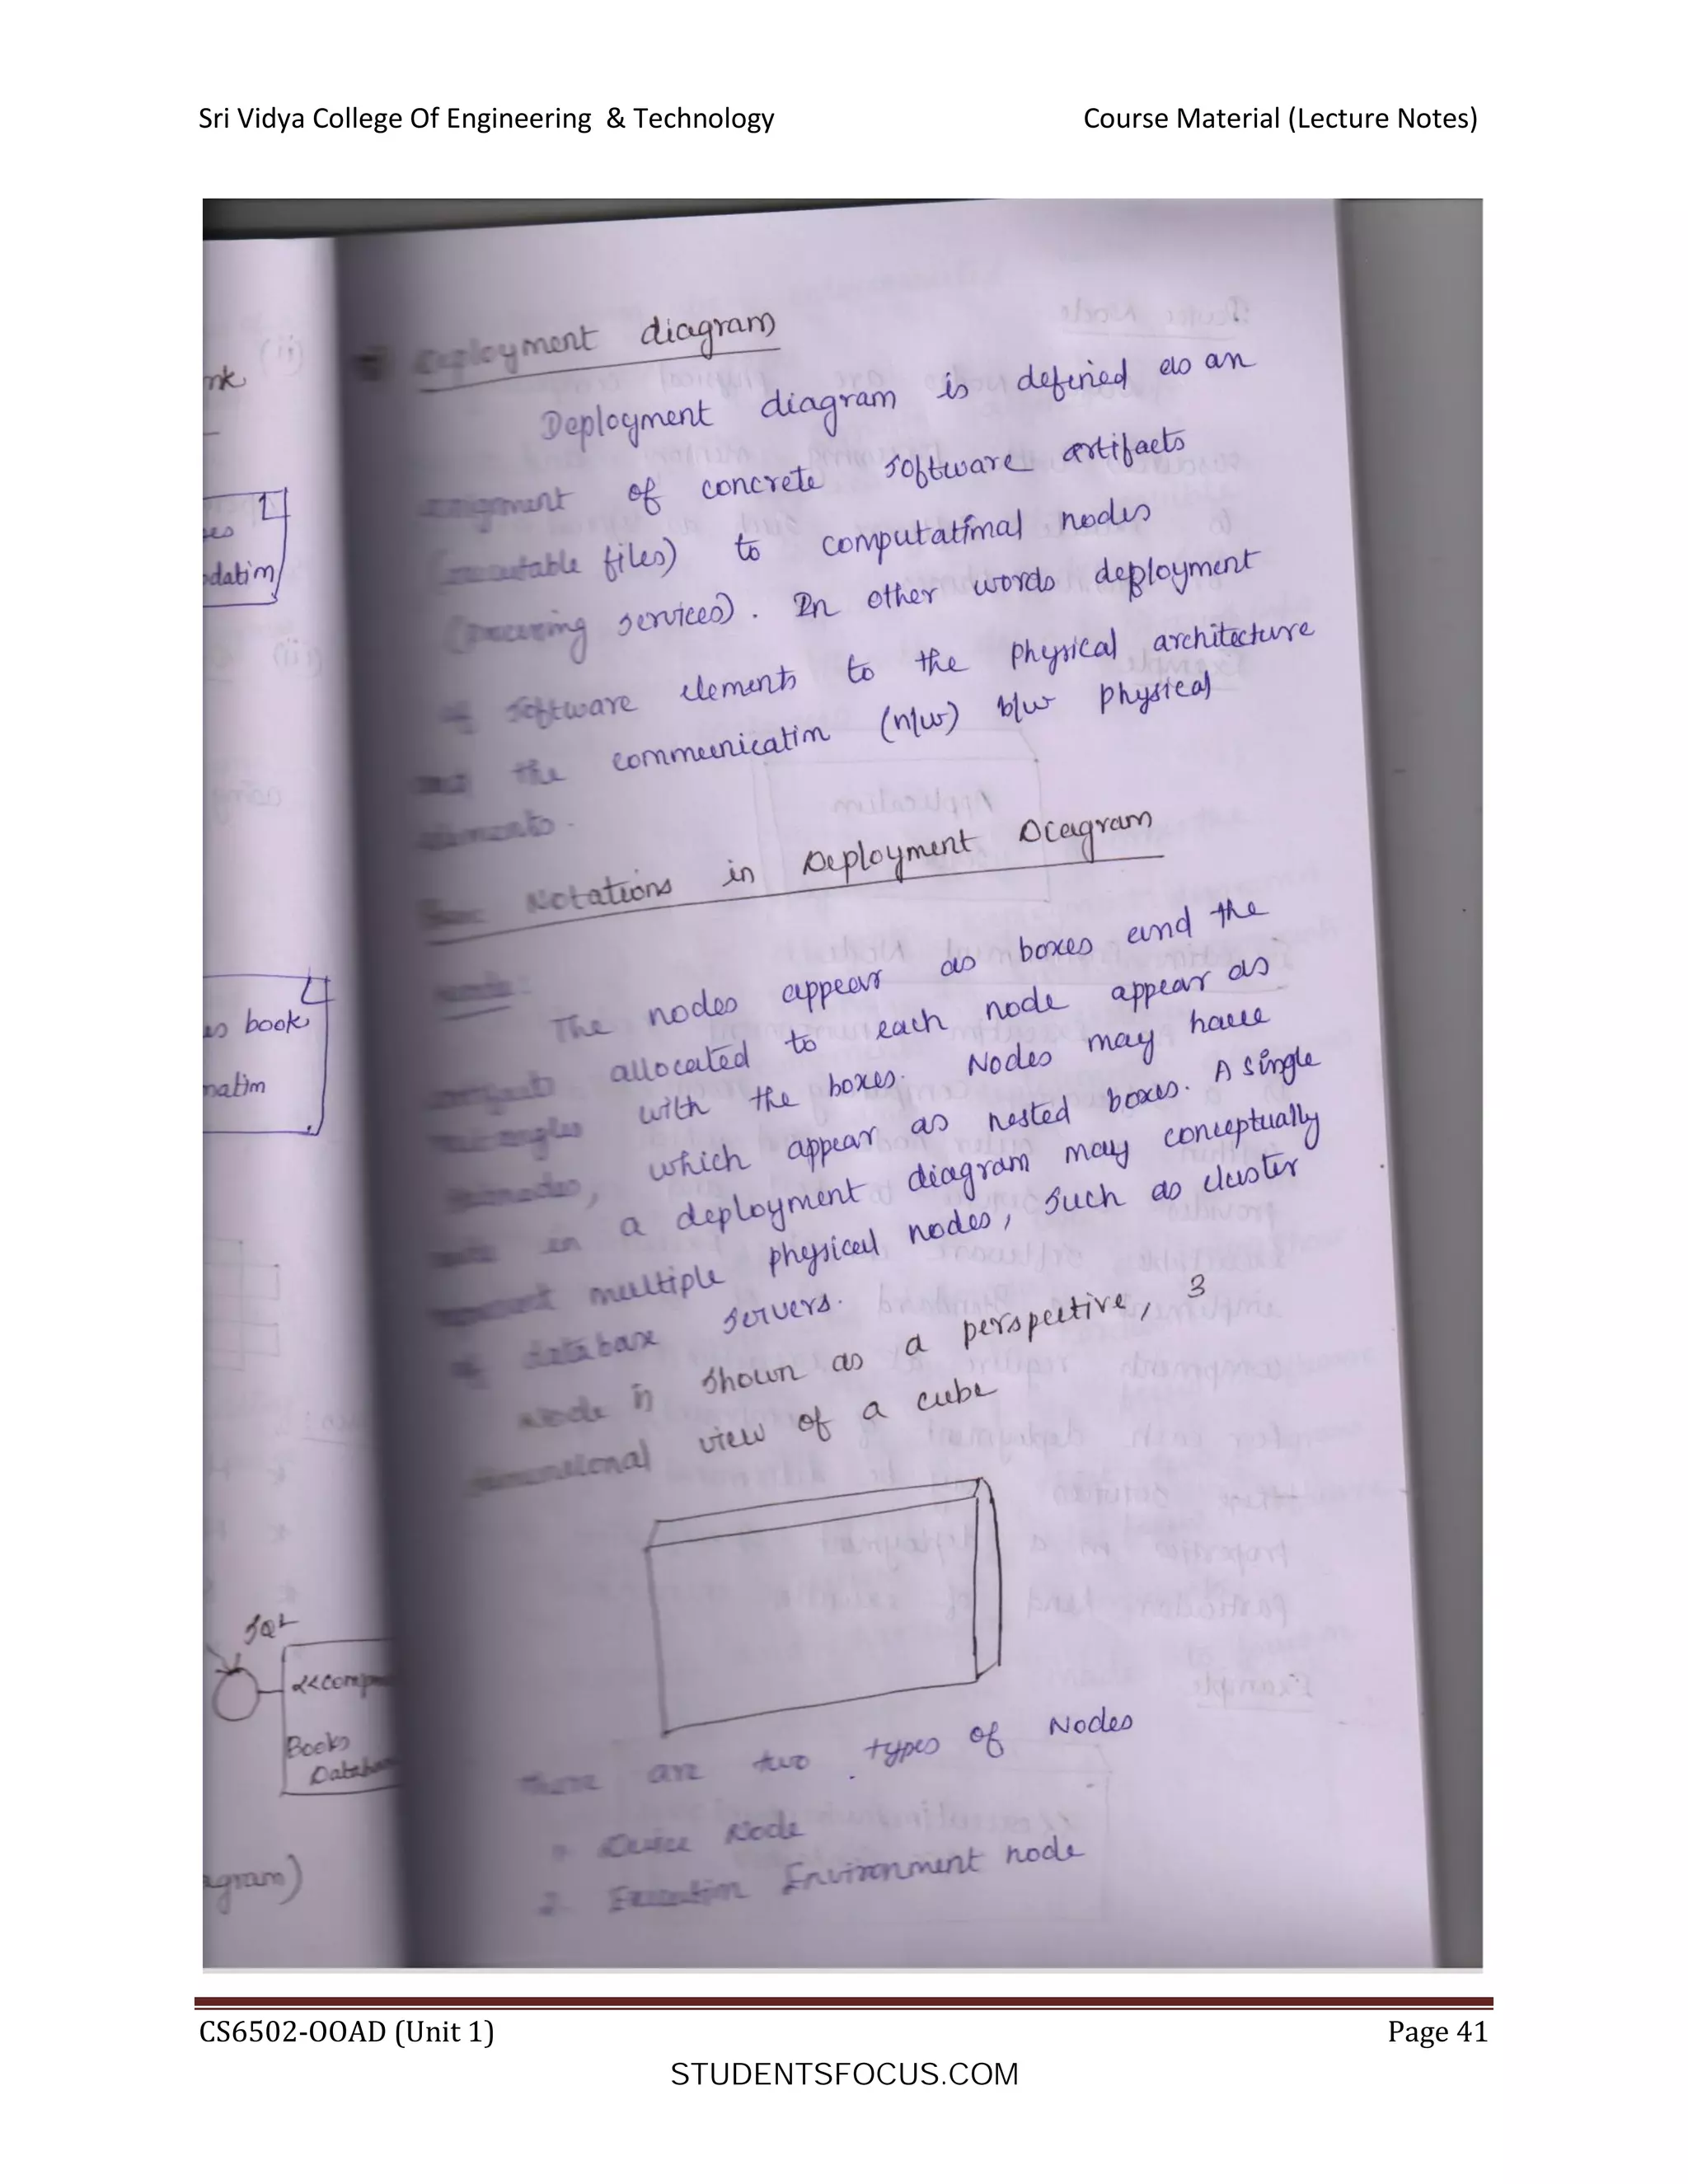 Sri Vidya College Of Engineering & Technology
Course Material (Lecture Notes)
Deployment diagram
Deployment diagram is defined as an
assignment of concrete software artifacts
(executable files) to computational nodes
(processing services). In other words deployment
of software elements to the physical architecture
and the communication (n/w) b/w physical
elements.
Basic Notations in Deployment Diagram
node:
The nodes appear as boxes and the
artifacts allocated to each node appear as
rectangles with the boxes. Nodes may have
subnodes, which appear as nested boxes. A single
node in a deployment diagram may conceptually
represent multiple physical nodes, such as cluster
of database servers.
Node is shown as a perspective, 3
dimensional view of a cube
There are two types of Nodes
1. Device Node
2. Execution Environment node
nk
dation
book
mation
SQL
<<comp
Books
Databa
agram)
CS6502-OOAD (Unit 1)
Page 41
STUDENTSFOCUS.COM